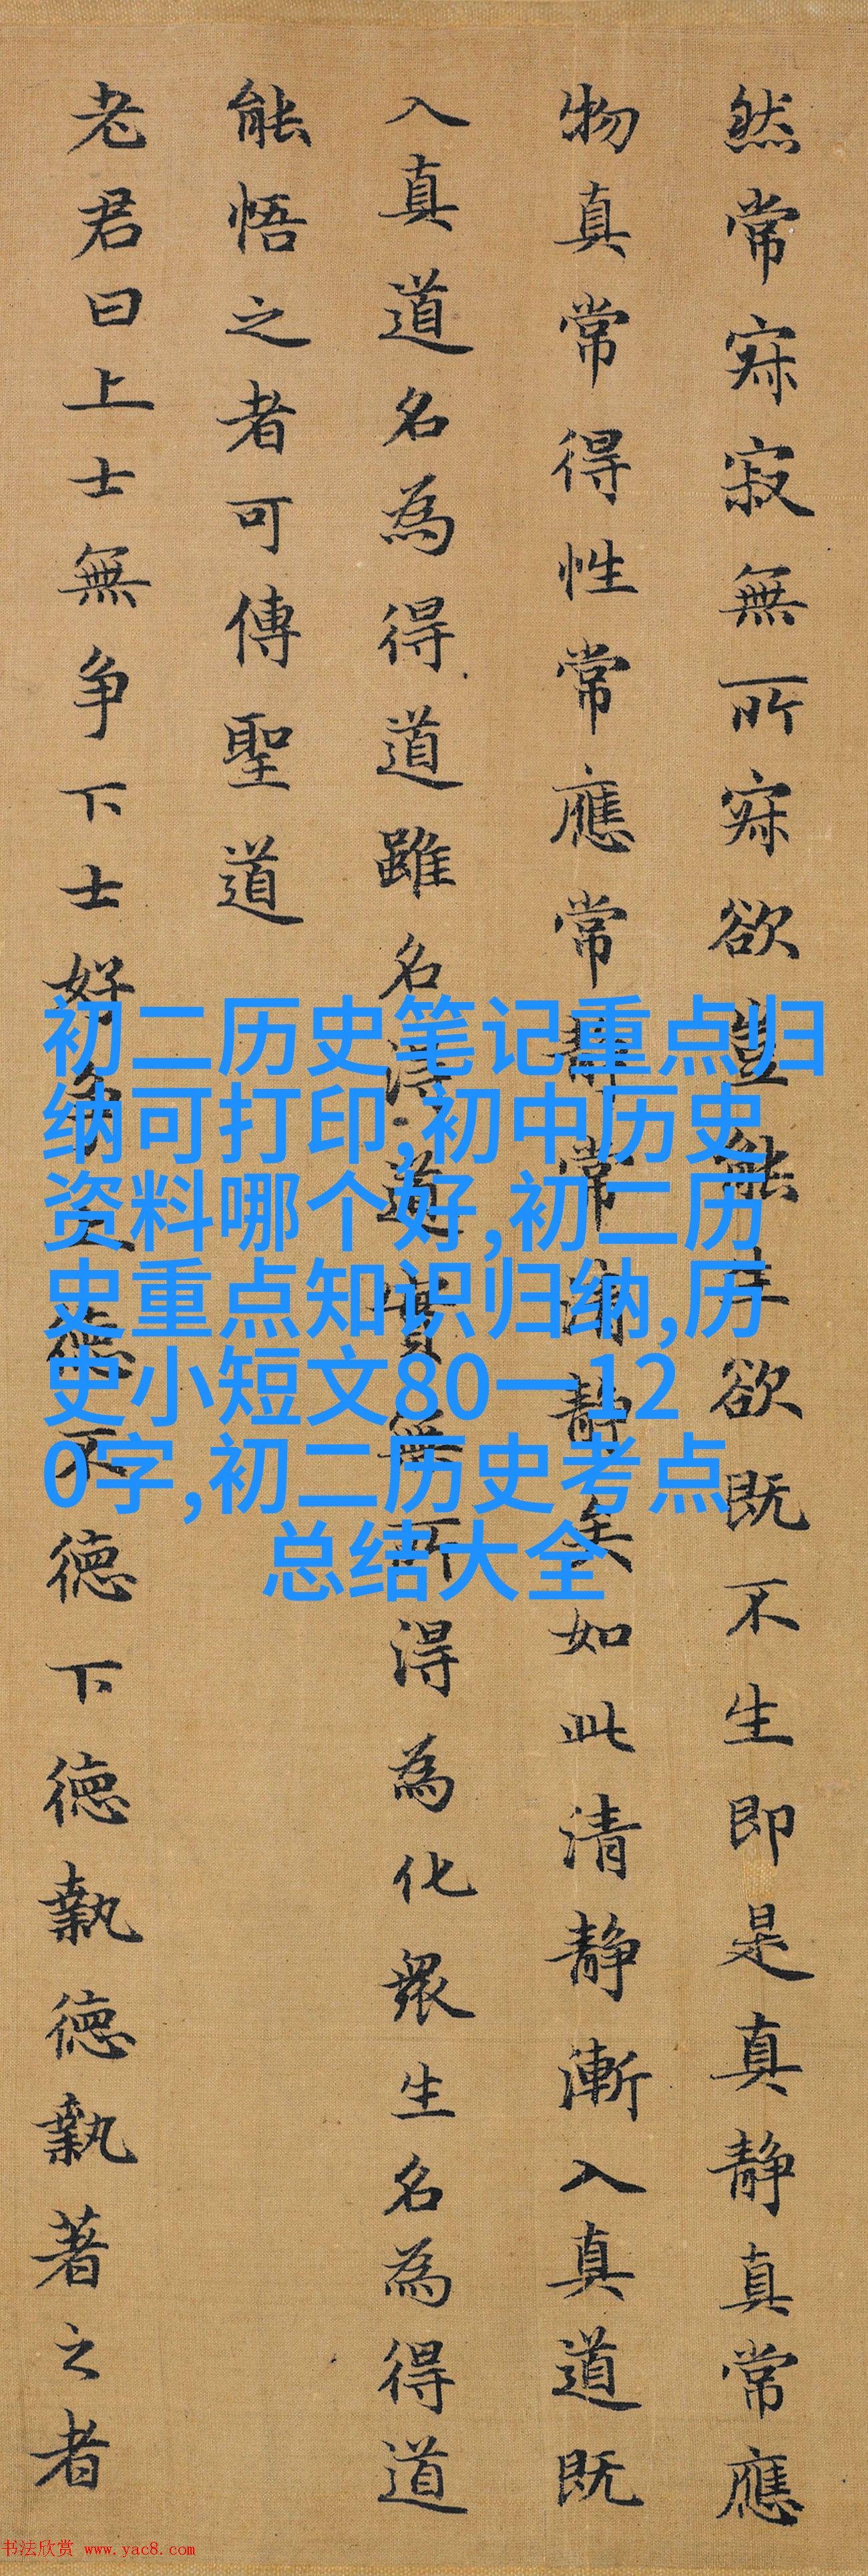 然常寂寂無所寂欲豈能生欲既不生即是真静真常應
物真常得性常應常静常清静矣如此清静漸入真道既
入真道名為得道雖名得道實無所得為化衆生名為得道
能悟之者可傳聖道
老君曰上士無争下士好争上德不德下德執德執著之者
初二历史笔记重点归
纳可打印,初中历史
资料哪个好,初二历
史重点知识归纳,历
史小短文80一12
0字,初二历史考点
总结大全
书法欣赏 www.yac8.com